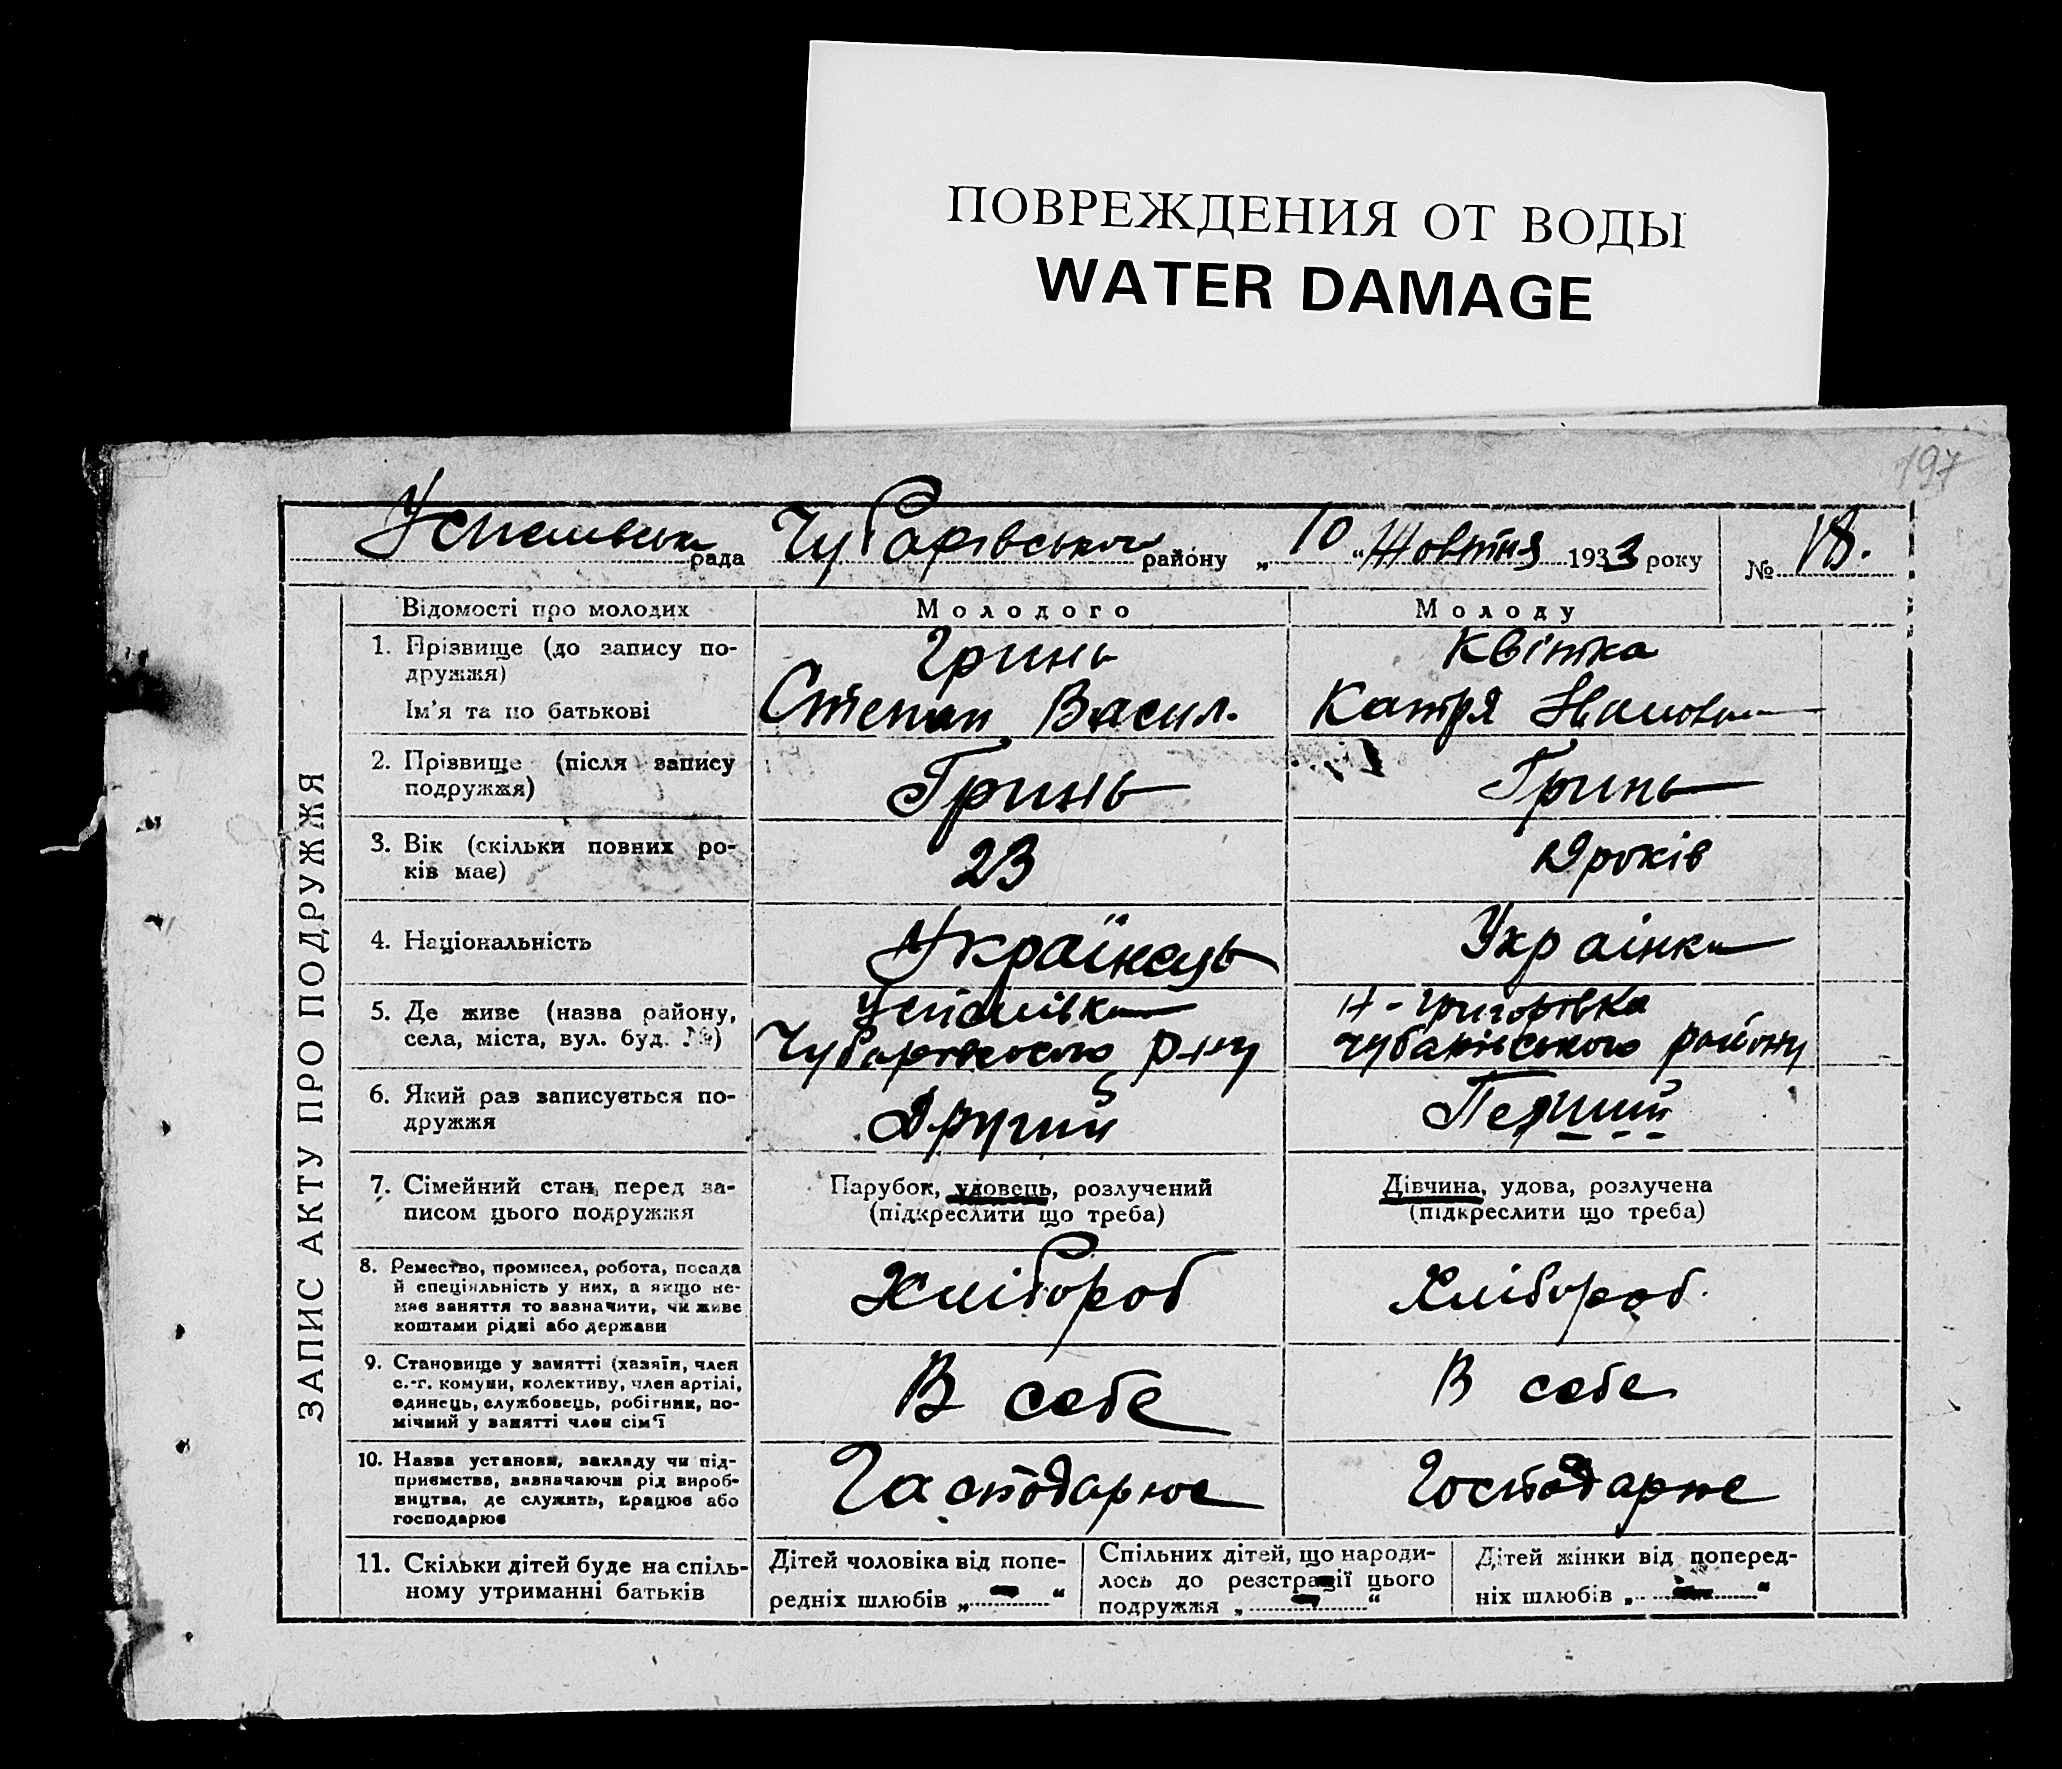 ПОВРЕЖДЕНИЯ ОТ ВОДЫ
WATER DAMAGE
197
Успенівська рада Чубарівського району „10“ Жовтня 1933 року № 18.
ЗАПИС АКТУ ПРО ПОДРУЖЖЯ
Відомості про молодих Молодого Молоду
1. Прізвище (до запису по-
дружжя)
Гринь Квітка
Ім'я та по батькові Степан Васил. Катря Іванівна
2. Прізвище (після запису
подружжя)
Гринь Гринь
3. Вік (скільки повних ро-
ків має)
23 19 років
4. Національність Українець Українка
5. Де живе (назва району,
села, міста, вул. буд. №)
Успенівка Н-Григорівка
Чубарівського р-ну Чубарівського району
6. Який раз записується по-
дружжя
Другий Перший
7. Сімейний стан перед за-
писом цього подружжя
Парубок, удовець, розлучений
(підкреслити що треба)
Дівчина, удова, розлучена
(підкреслити що треба)
8. Ремество, промисел, робота, посада
й спеціяльність у них, а якщо не-
має заняття то зазначити, чи живе
коштами рідні або держави
Хлібороб Хлібороб.
9. Становище у занятті (хазяїн, член
с.-г. комуни, колективу, член артілі,
одинець, службовець, робітник, по-
мічний у занятті член сім'ї
В себе В себе
10. Назва установи, закладу чи під-
приємства, зазначаючи рід вироб-
ництва, де служить, працює або
господарює
Гасподарює Господарює
11. Скільки дітей буде на спіль-
ному утриманні батьків
Дітей чоловіка від попе-
редніх шлюбів „ — “
Спільних дітей, що народи-
лось до реєстрації цього
подружжя „ — “
Дітей жінки від поперед-
ніх шлюбів „ — “